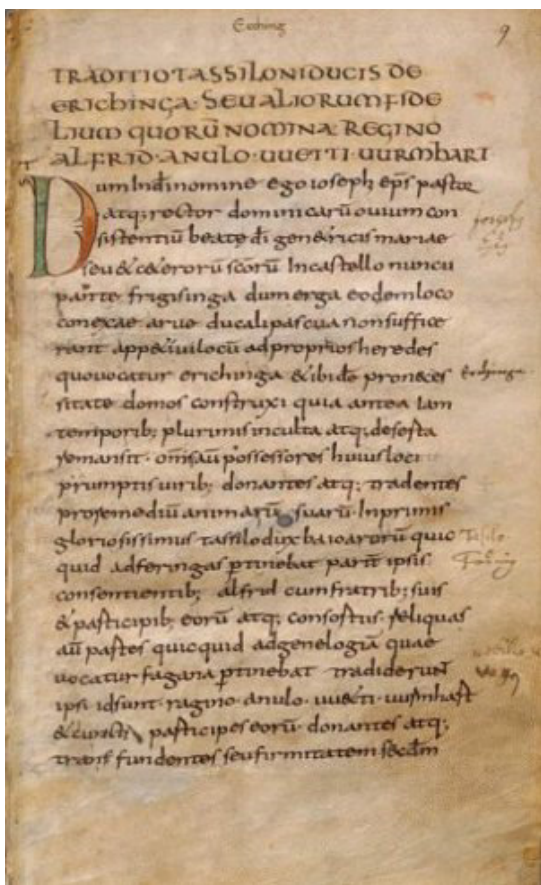 Erching
9
TRADITIO TASSILONI DUCIS DE
ERICHINGA· SEU ALIORUM FIDE
LIUM QUORŪ NOMINA· REGINO
ALFRID· ANULO· UUETTI· UURMHARI
Dum In dī nomine ego ioseph ep̄s pastor
atq; rector dominicarū ovium con
sistentiū beate dī genetricis mariae
seu & ceterorū sc̄orū In castello nuncu
pante frigisinga dum erga eodem loco
conexae arue ducali pascua non suffice
rant appetiui locū ad proprios heredes
quo vocatur erichinga & ibidē pro neces
Erchinga
sitate domos construxi quia antea iam
temporib; plurimis inculta atq; deserta
remansit· om̄s aū possessores huius loci
prumptis uirib; donantes atq; tradentes
pro remediū animarū suarū· Inprimis
gloriosissimus tassilo dux baioarorū quic
Tassilo
quid ad feringas ꝑtinebat pariт ipsis
consentientib; alfrid cum fratrib; suis
& participib; eorū atq; consortiis· reliquas
aū partes quicquid ad genelogiā quae
uocatur fagana ꝑtinebat tradiderunt
ipsi id sunt· ragino· anulo· uuetti· uurmhart
& cuncti participes eorū· donantes atq;
transfundentes seu firmitatem secdm